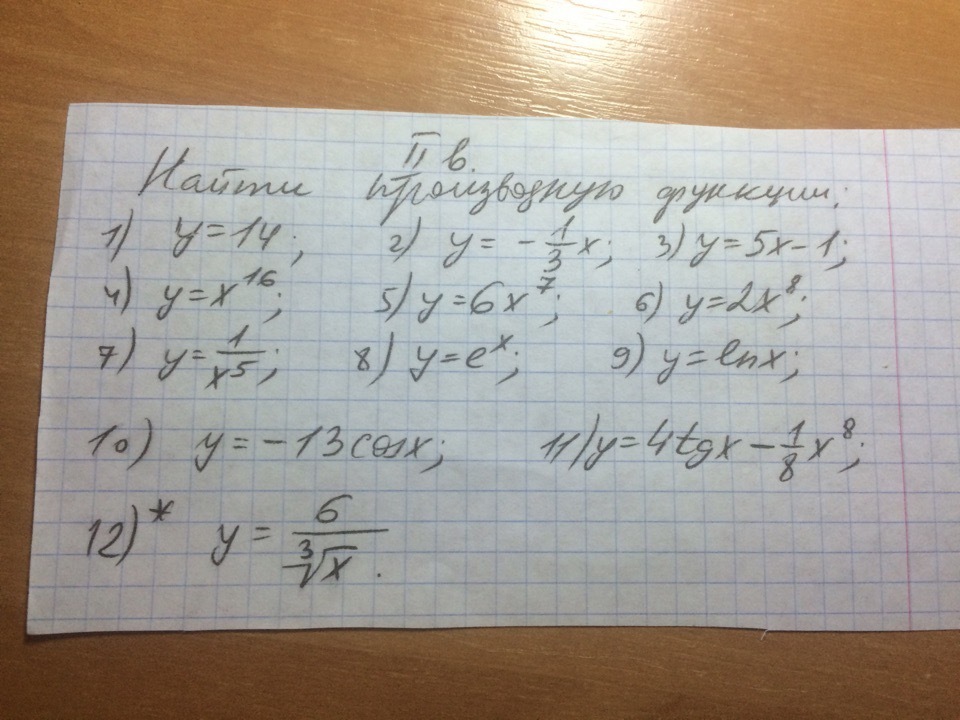 II в.
Найти производную функции:
1) y=14; 2) y = -1/3x; 3) y=5x-1;
4) y=x^16; 5) y=6x^7; 6) y=2x^8;
7) y=1/x^5; 8) y=e^x; 9) y=lnx;
10) y=-13cosx; 11) y=4tgx-1/8x^8;
12)* y = 6/∛x.